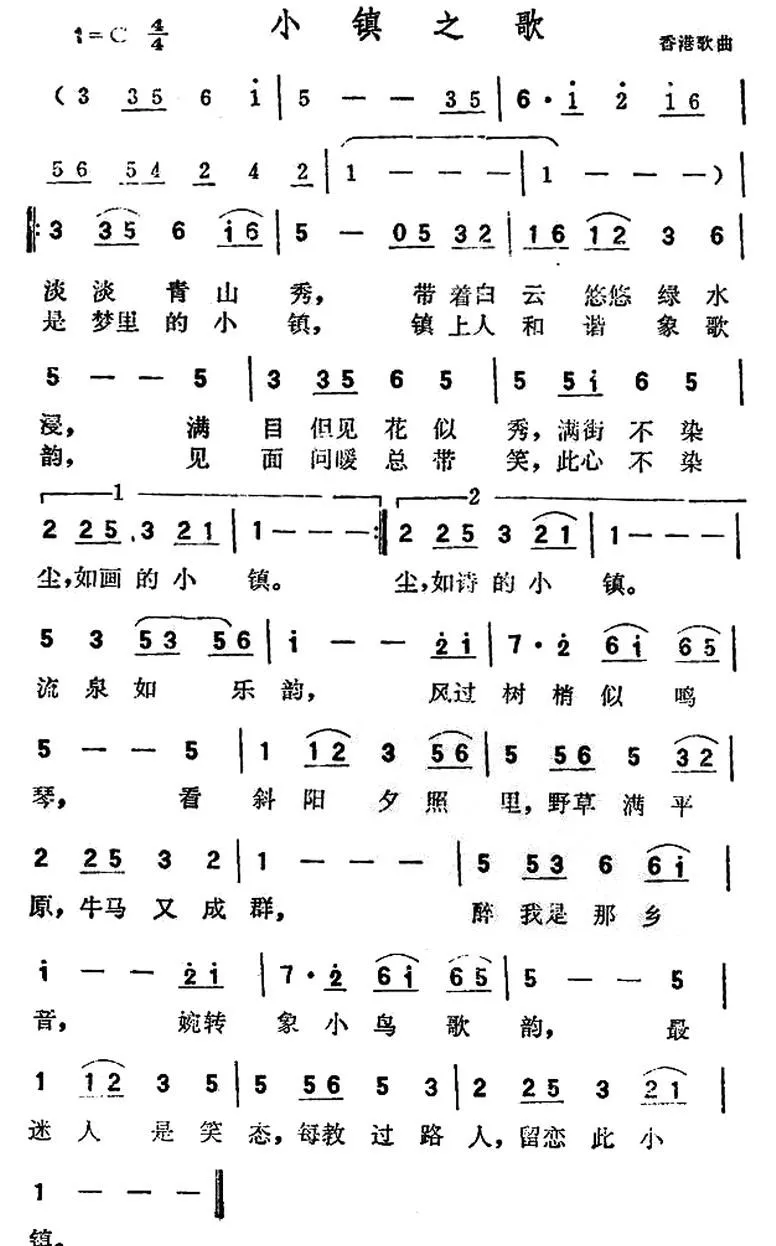 小镇之歌
1=C 4/4
香港歌曲
(3 35 6 i | 5 — — 35 | 6· i 2 i6 |
56 54 2 4 2 | 1 — — — | 1 — — —) |
‖: 3 35 6 i6 | 5 — 05 32 | 16 12 3 6
淡淡青山秀，带着白云悠悠绿水
是梦里的小镇，镇上人和谐象歌
5 — — 5 | 3 35 6 5 | 5 5i 6 5 |
浸，满目但见花似秀，满街不染
韵，见面问暖总带笑，此心不染
1 2
2 25 · 3 21 | 1 — — — :‖ 2 25 3 21 | 1 — — — |
尘，如画的小镇。尘，如诗的小镇。
5 3 53 56 | i — — 2i | 7· 2 6i 65 |
流泉如乐韵，风过树梢似鸣
5 — — 5 | 1 12 3 56 | 5 56 5 32 |
琴，看斜阳夕照里，野草满平
2 25 3 2 | 1 — — — | 5 53 6 6i |
原，牛马又成群，醉我是那乡
i — — 2i | 7· 2 6i 65 | 5 — — 5 |
音，婉转象小鸟歌韵，最
1 12 3 5 | 5 56 5 3 | 2 25 3 21 |
迷人是笑态，每教过路人，留恋此小
1 — — — ‖
镇。